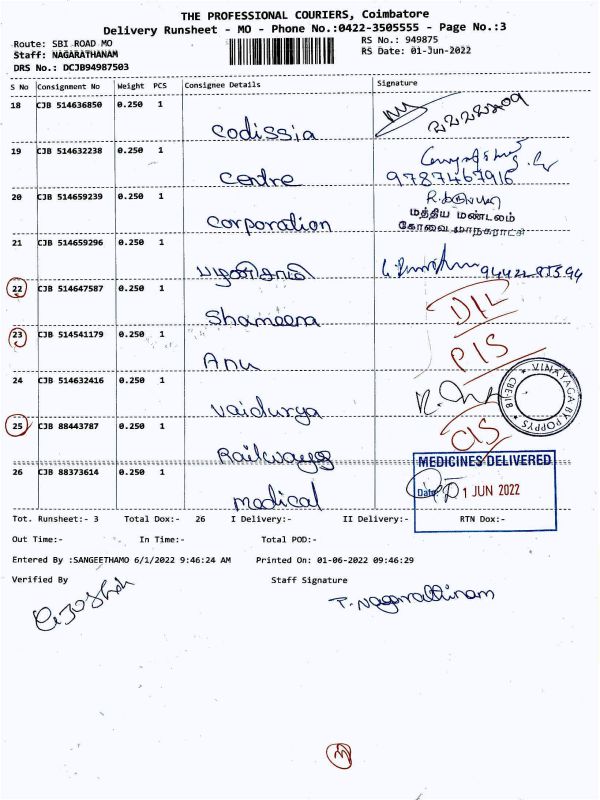 THE PROFESSIONAL COURIERS, Coimbatore
Delivery Runsheet - MO - Phone No.:0422-3505555 - Page No.:3
Route: SBI ROAD MO
RS No.: 949875
Staff: NAGARATHANAM
RS Date: 01-Jun-2022
DRS No.: DCJB94987503
S No Consignment No Weight PCS Consignee Details Signature
18 CJB 514636850 0.250 1
Codissia
19 CJB 514632238 0.250 1
Centre 9787467916
20 CJB 514659239 0.250 1
Corporation
மத்திய மண்டலம்
கோவை மாநகராட்சி
21 CJB 514659296 0.250 1
பழனிசாமி
22 CJB 514647587 0.250 1
Shameera D/L
23 CJB 514541179 0.250 1
Anu P/S
24 CJB 514632416 0.250 1
Vaidurya
VINAYAGA BY POPPYS
CBE-18
25 CJB 88443787 0.250 1
Railways C/S
26 CJB 88373614 0.250 1
medical
MEDICINES DELIVERED
Date: 01 JUN 2022
Tot. Runsheet:- 3 Total Dox:- 26 I Delivery:- II Delivery:- RTN Dox:-
Out Time:- In Time:- Total POD:-
Entered By :SANGEETHAMO 6/1/2022 9:46:24 AM Printed On: 01-06-2022 09:46:29
Verified By Staff Signature
P. Nagarattinam